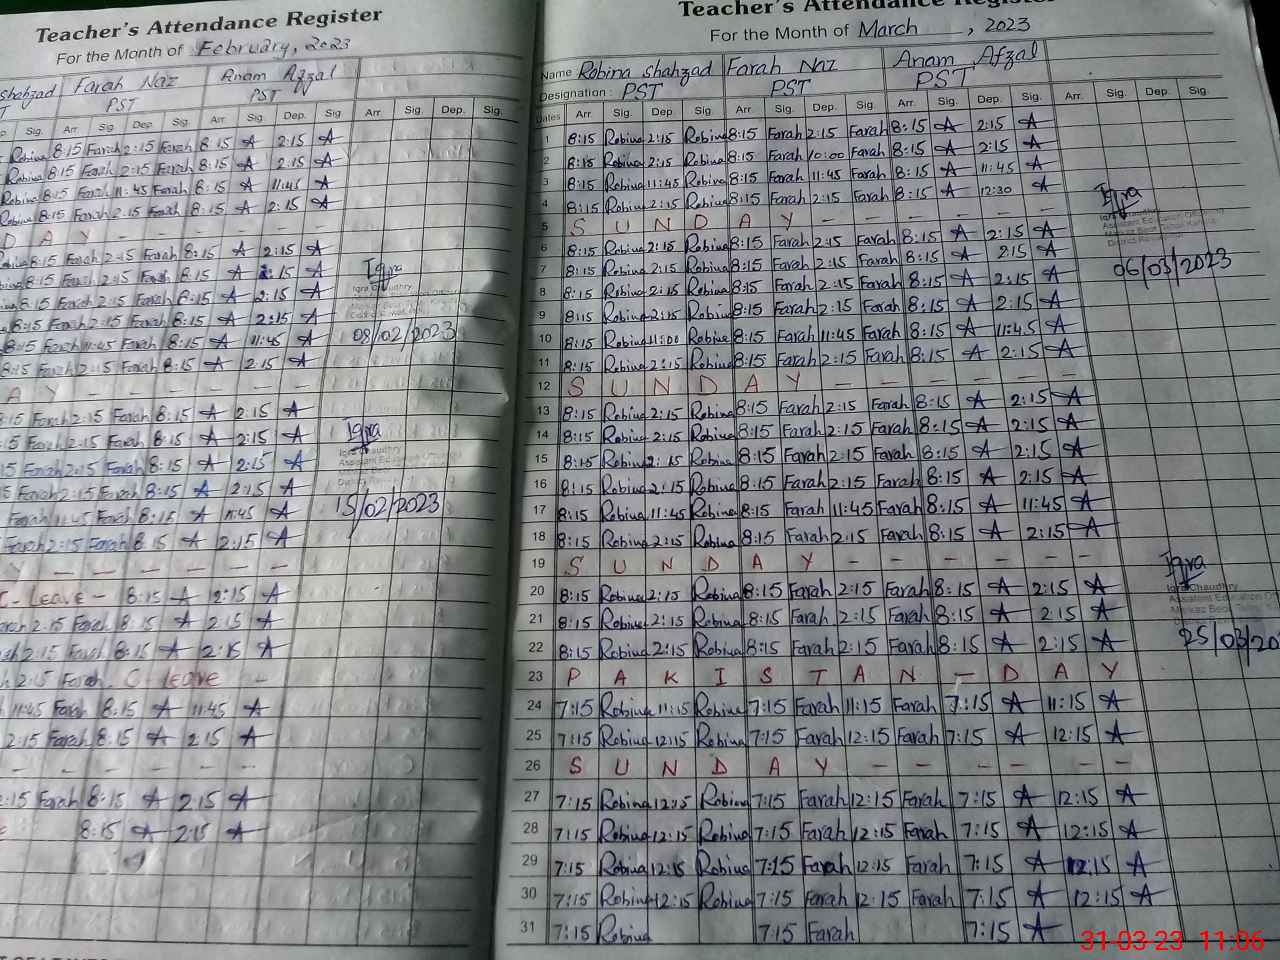 Teacher's Attendance Register
For the Month of February, 2023
shahzad Farah Naz Anam Afzal
PST PST
Sig. Arr. Sig. Dep. Sig. Arr. Sig. Dep. Sig. Arr. Sig. Dep. Sig.
Robina 8:15 Farah 2:15 Farah 8:15 A 2:15 A
Robina 8:15 Farah 2:15 Farah 8:15 A 2:15 A
Robina 8:15 Farah 11:45 Farah 8:15 A 11:45 A
Robina 8:15 Farah 2:15 Farah 8:15 A 2:15 A
D A Y - - - - - -
8:15 Farah 2:15 Farah 8:15 A 2:15 A
8:15 Farah 2:15 Farah 8:15 A 2:15 A
Iqra
Iqra Chaudhry
8:15 Farah 2:15 Farah 8:15 A 2:15 A
8:15 Farah 2:15 Farah 8:15 A 2:15 A
08/02/2023
8:15 Farah 11:45 Farah 8:15 A 11:45 A
8:15 Farah 2:15 Farah 8:15 A 2:15 A
A Y - - - - - -
:15 Farah 2:15 Farah 8:15 A 2:15 A
15 Farah 2:15 Farah 8:15 A 2:15 A
Iqra
Iqra Chaudhry
15 Farah 2:15 Farah 8:15 A 2:15 A
Farah 2:15 Farah 8:15 A 2:15 A
15/02/2023
Farah 11:45 Farah 8:15 A 11:45 A
Farah 2:15 Farah 8:15 A 2:15 A
Y - - - - - - -
C- Leave - 8:15 A 2:15 A
2:15 Farah 8:15 A 2:15 A
2:15 Farah 8:15 A 2:15 A
2:15 Farah C-leave -
11:45 Farah 8:15 A 11:45 A
2:15 Farah 8:15 A 2:15 A
- - - - - - -
:15 Farah 8:15 A 2:15 A
8:15 A 2:15 A
Teacher's Attendance Register
For the Month of March, 2023
Name Robina shahzad Farah Naz Anam Afzal
Designation : PST PST PST
Dates Arr. Sig. Dep. Sig. Arr. Sig. Dep. Sig. Arr. Sig. Dep. Sig. Arr. Sig. Dep. Sig.
1 8:15 Robina 2:15 Robina 8:15 Farah 2:15 Farah 8:15 A 2:15 A
2 8:15 Robina 2:15 Robina 8:15 Farah 10:00 Farah 8:15 A 2:15 A
3 8:15 Robina 11:45 Robina 8:15 Farah 11:45 Farah 8:15 A 11:45 A
4 8:15 Robina 2:15 Robina 8:15 Farah 2:15 Farah 8:15 A 12:30 A
Iqra
5 S U N D A Y - - - - - -
6 8:15 Robina 2:15 Robina 8:15 Farah 2:15 Farah 8:15 A 2:15 A
7 8:15 Robina 2:15 Robina 8:15 Farah 2:15 Farah 8:15 A 2:15 A
06/03/2023
8 8:15 Robina 2:15 Robina 8:15 Farah 2:15 Farah 8:15 A 2:15 A
9 8:15 Robina 2:15 Robina 8:15 Farah 2:15 Farah 8:15 A 2:15 A
10 8:15 Robina 11:00 Robina 8:15 Farah 11:45 Farah 8:15 A 11:45 A
11 8:15 Robina 2:15 Robina 8:15 Farah 2:15 Farah 8:15 A 2:15 A
12 S U N D A Y - - - - - -
13 8:15 Robina 2:15 Robina 8:15 Farah 2:15 Farah 8:15 A 2:15 A
14 8:15 Robina 2:15 Robina 8:15 Farah 2:15 Farah 8:15 A 2:15 A
15 8:15 Robina 2:15 Robina 8:15 Farah 2:15 Farah 8:15 A 2:15 A
16 8:15 Robina 2:15 Robina 8:15 Farah 2:15 Farah 8:15 A 2:15 A
17 8:15 Robina 11:45 Robina 8:15 Farah 11:45 Farah 8:15 A 11:45 A
18 8:15 Robina 2:15 Robina 8:15 Farah 2:15 Farah 8:15 A 2:15 A
19 S U N D A Y - - - - - -
Iqra
Iqra Chaudhry
20 8:15 Robina 2:15 Robina 8:15 Farah 2:15 Farah 8:15 A 2:15 A
21 8:15 Robina 2:15 Robina 8:15 Farah 2:15 Farah 8:15 A 2:15 A
22 8:15 Robina 2:15 Robina 8:15 Farah 2:15 Farah 8:15 A 2:15 A
25/03/20
23 P A K I S T A N - D A Y
24 7:15 Robina 11:15 Robina 7:15 Farah 11:15 Farah 7:15 A 11:15 A
25 7:15 Robina 12:15 Robina 7:15 Farah 12:15 Farah 7:15 A 12:15 A
26 S U N D A Y - - - - - -
27 7:15 Robina 12:15 Robina 7:15 Farah 12:15 Farah 7:15 A 12:15 A
28 7:15 Robina 12:15 Robina 7:15 Farah 12:15 Farah 7:15 A 12:15 A
29 7:15 Robina 12:15 Robina 7:15 Farah 12:15 Farah 7:15 A 12:15 A
30 7:15 Robina 12:15 Robina 7:15 Farah 12:15 Farah 7:15 A 12:15 A
31 7:15 Robina 7:15 Farah 7:15 A
31-03-23 11:06